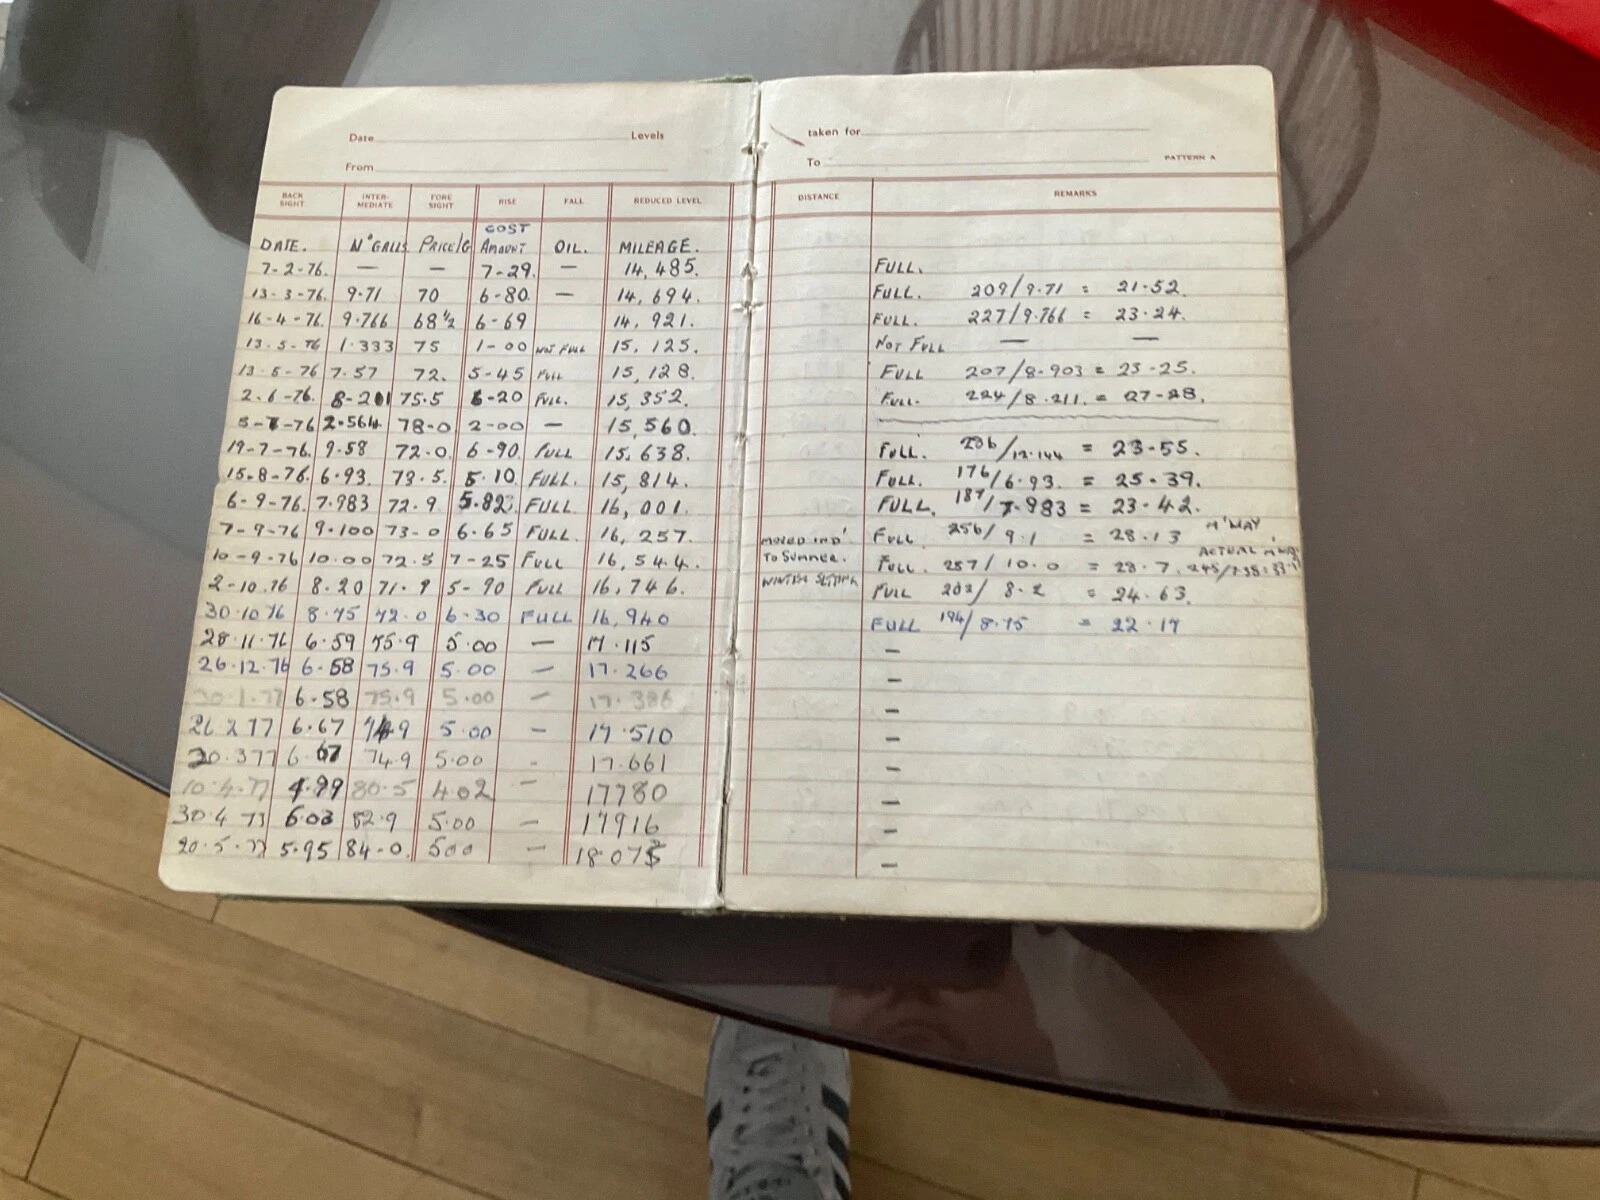 Date Levels taken for
From To PATTERN A
BACK SIGHT. INTER-MEDIATE FORE SIGHT RISE FALL REDUCED LEVEL DISTANCE REMARKS
DATE. Nº GALLS PRICE/G COST AMOUNT OIL. MILEAGE.
7-2-76. — — 7-29. — 14,485. FULL.
13-3-76. 9.71 70 6-80. — 14,694. FULL. 209/9.71 = 21.52.
16-4-76. 9.766 68½ 6-69 14,921. FULL. 227/9.766 = 23.24.
13-5-76 1.333 75 1-00 NOT FULL 15,125. NOT FULL — —
13-5-76 7.57 72. 5-45 FULL 15,128. FULL 207/8-903 = 23-25.
2.6-76. 8-201 75.5 6-20 FULL. 15,352. FULL. 224/8.211. = 27-28.
5-7-76 2.564 78-0 2-00 — 15,560.
19-7-76. 9.58 72.0. 6-90. FULL 15,638. FULL. 286/12.144 = 23-55.
15.8-76. 6.93. 73.5. 5.10 FULL. 15,814. FULL. 176/6.93. = 25.39.
6-9-76. 7.983 72.9 5.82 FULL 16,001. FULL. 187/7.983 = 23.42.
7-9-76 9.100 73-0 6.65 FULL. 16,257. MOVED IND' FULL 256/9.1 = 28.13 M'WAY
10-9-76 10.00 72.5 7-25 FULL 16,544. TO SUMMER. FULL. 287/10.0 = 28.7. ACTUAL
2-10.76 8.20 71.9 5-90 FULL 16,746. WINTER SETTING FULL 202/8.2 = 24.63.
30.10.76 8.75 72.0 6.30 FULL 16,940 FULL 194/8.75 = 22.17
28.11.76 6.59 75.9 5.00 — 17.115 —
26.12.76 6-58 75.9 5.00 — 17.266 —
30.1.77 6.58 75.9 5.00 — 17.386 —
26 2 77 6.67 74.9 5.00 — 17.510 —
20.3 77 6.67 74.9 5.00 - 17.661 —
10.4.77 4.99 80.5 4.02 — 17780 —
30.4 77 6.03 82.9 5.00 — 17916 —
20.5.77 5.95 84.0. 500 — 18.075 —